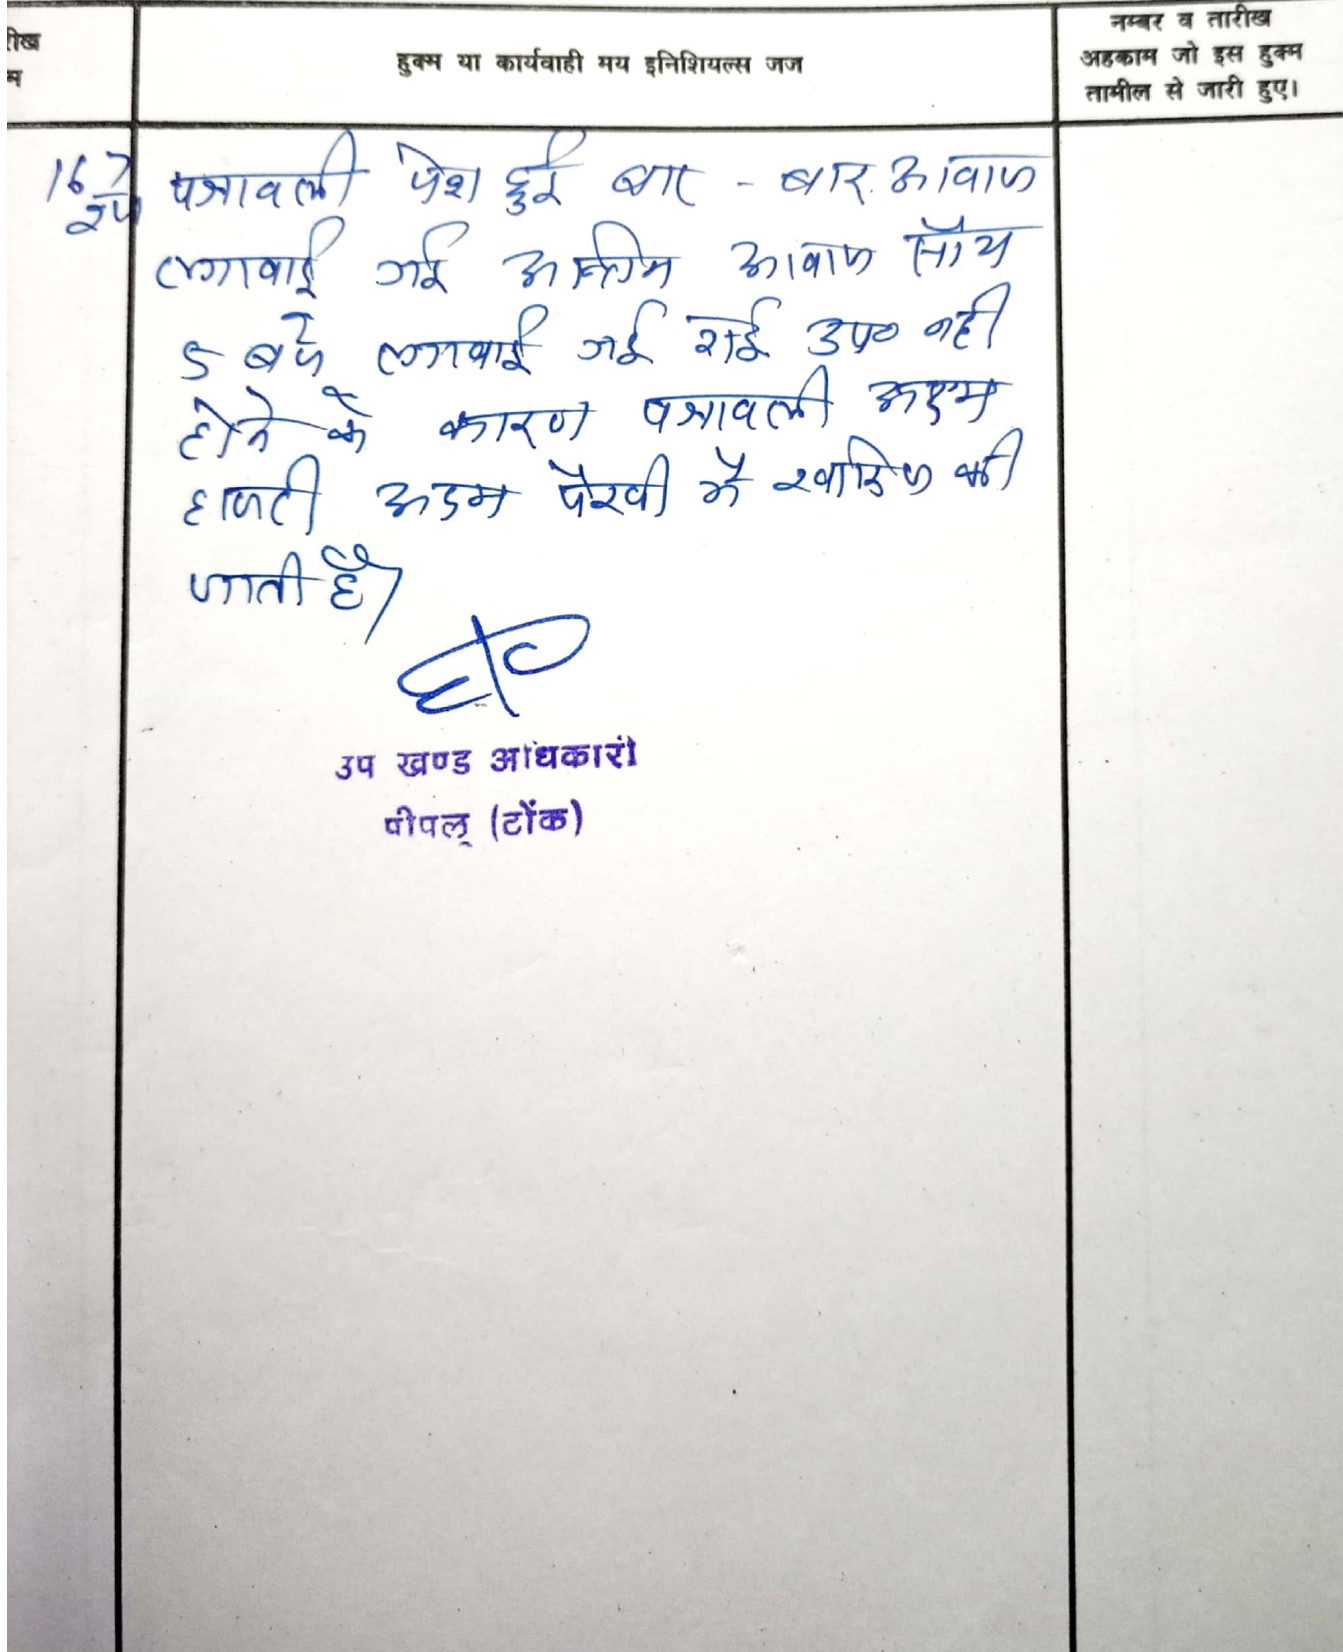 रीख
म
हुक्म या कार्यवाही मय इनिशियल्स जज
नम्बर व तारीख
अहकाम जो इस हुक्म
तामील से जारी हुए।
16 7
पत्रावली पेश हुई बार - बार आवाज
लगवाई गई अन्तिम आवाज साँय
5 बजे लगवाई गई कोई उप० नही
होने के कारण पत्रावली अदम
हाजरी अदम पैरवी में खारिज की
जाती है।
उप खण्ड अधिकारी
पीपलू (टोंक)